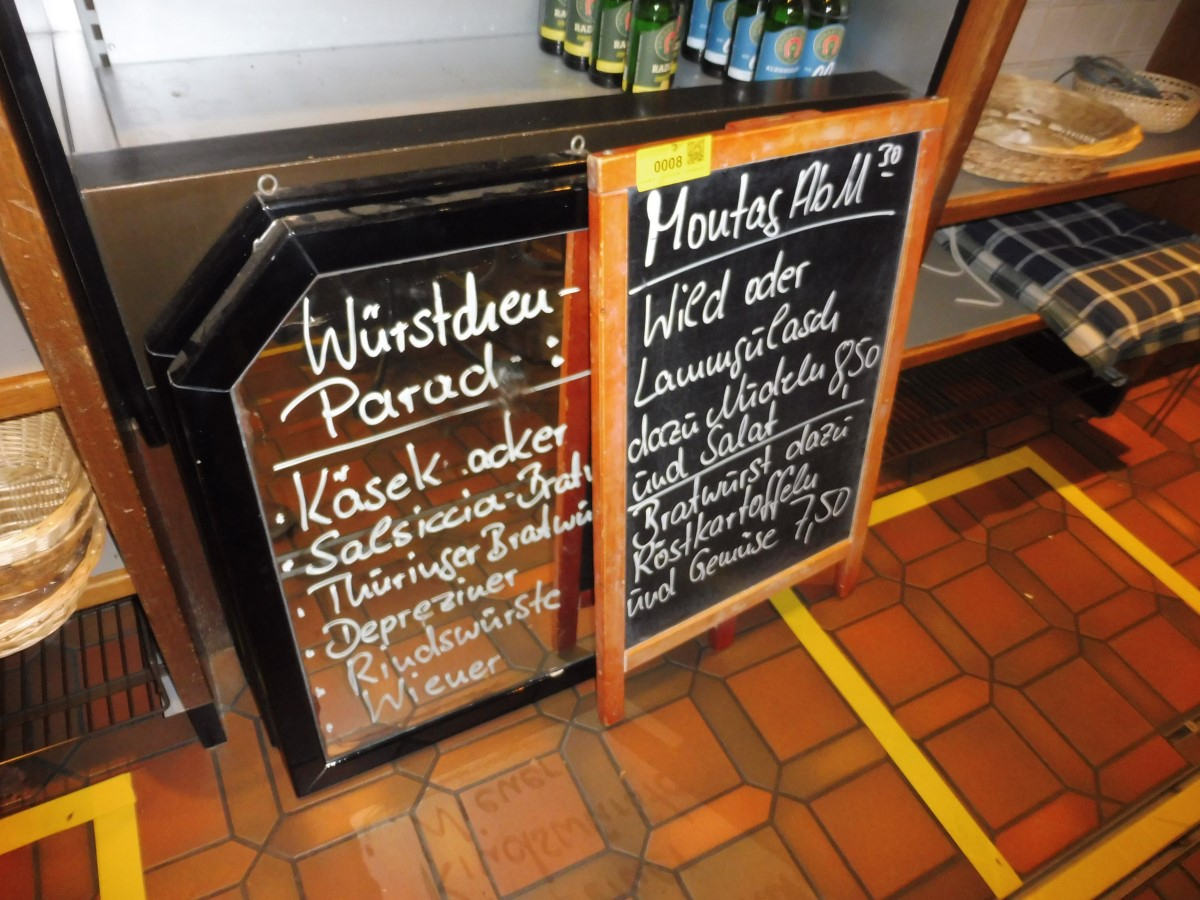 Würstchen-
Parad :
· Käsek acker
· Salsiccia-Bratw
· Thüringer Bratwü
· Depreziner
· Rindswürste
· Wiener
0008
Montag Ab 11 30
Wild oder
Lammgulasch
dazu Nudeln 8,50
und Salat
Bratwurst dazu
Röstkartoffeln
und Gemüse 7,50